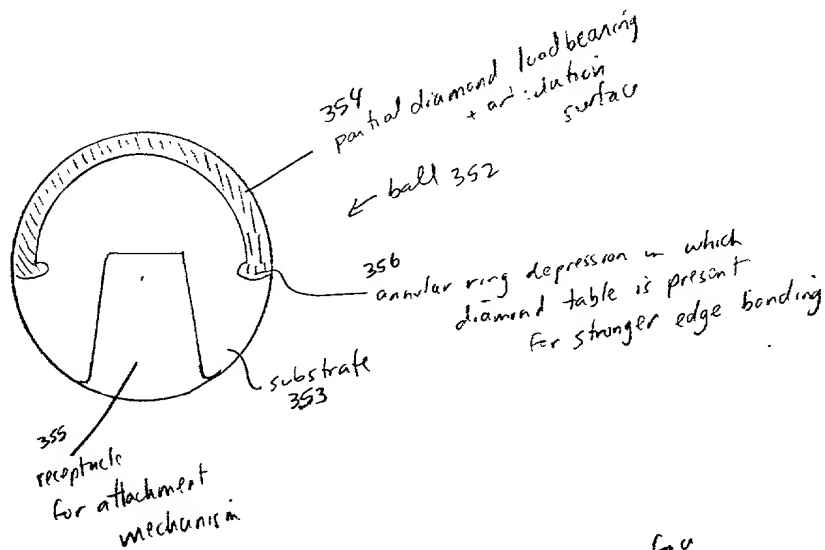 354
partial diamond loadbearing
+ articulation
surface
ball 352
356
annular ring depression in which
diamond table is present
for stronger edge bonding
substrate
353
355
receptacle
for attachment
mechanism